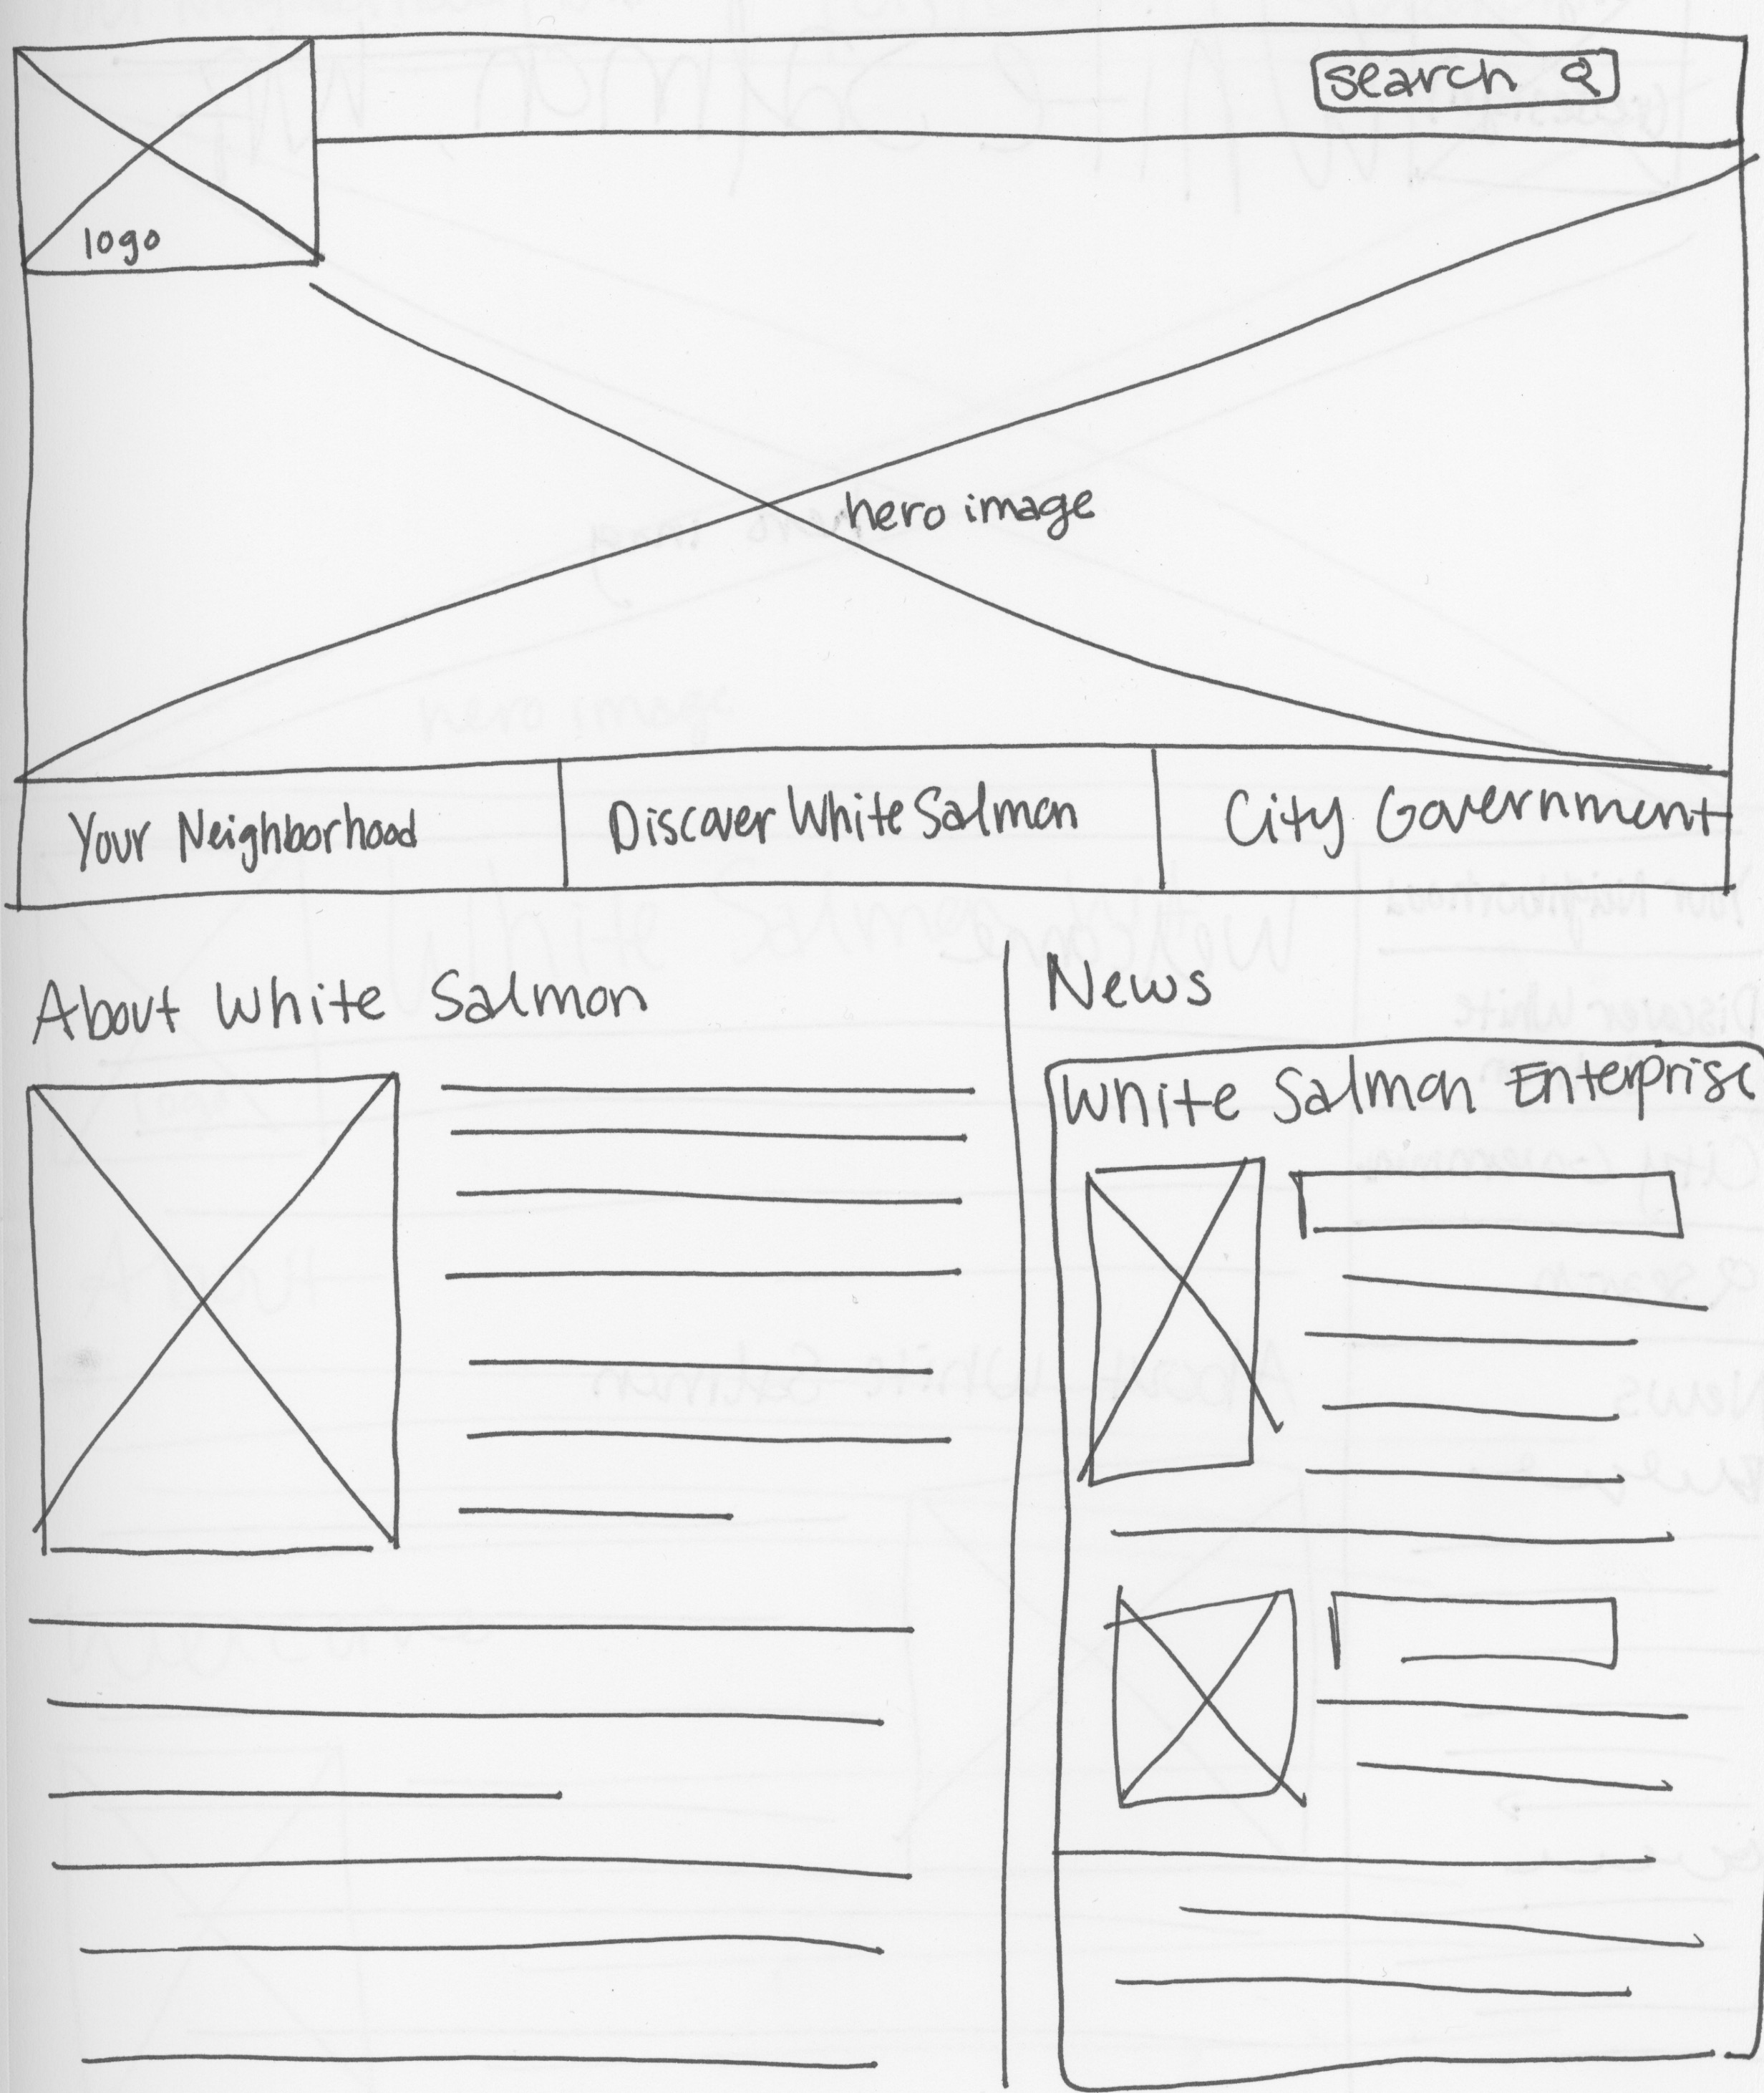 search
logo
hero image
Your Neighborhood
Discover White Salmon
City Government
About White Salmon
News
White Salmon Enterprise
hero image